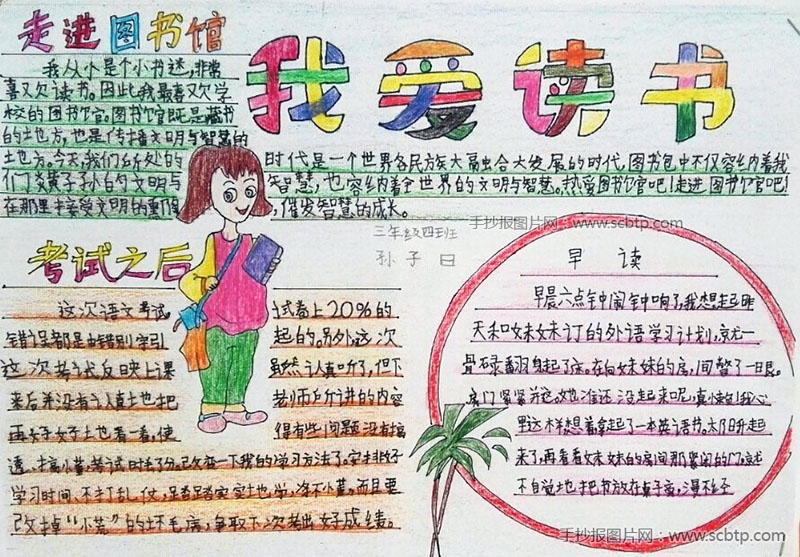 走进图书馆
我爱读书
我从小是个小书迷,非常
喜欢读书。因此我最喜欢学
校的图书馆。图书馆既是藏书
的地方,也是传播文明与智慧的
地方。今天,我们所处的 时代是一个世界各民族大融合大发展的时代,图书包中不仅容纳着我
们炎黄子孙的文明与 智慧,也容纳着全世界的文明与智慧。热爱图书馆吧!走进图书馆吧!
在那里接受文明的熏陶 ,催发智慧的成长。
手抄报图片网:www.scbtp.com
三年级四班
孙子日
考试之后
这次语文考试 试卷上20%的
错误都是由错别字引 起的。另外,这次
这次考试反映上课 虽然认真听了,但下
来后并没有认真地把 老师所讲的内容
再好好地看一看,使 得有些问题没有搞
透,搞小薯,考试时丢了分。改变一下我的学习方法了。安排好
学习时间,不打扎仗,踏踏实实地学,净不小薯,而且要
改掉“小薯”的坏毛病,争取下次考出好成绩。
早 读
早晨六点钟闹钟响了,我想起昨
天和妹妹订的外语学习计划,就一
骨碌翻身起了床。在向妹妹的房间瞥了一眼。
房门紧紧关这。她准还没起来呢,真懒!我心
里这样想着拿起了一本英语书。太阳升起
来了,再看看妹妹的房间那紧闭的门,就
不自觉地把书放在桌子商,漫不经
手抄报图片网:www.scbtp.com